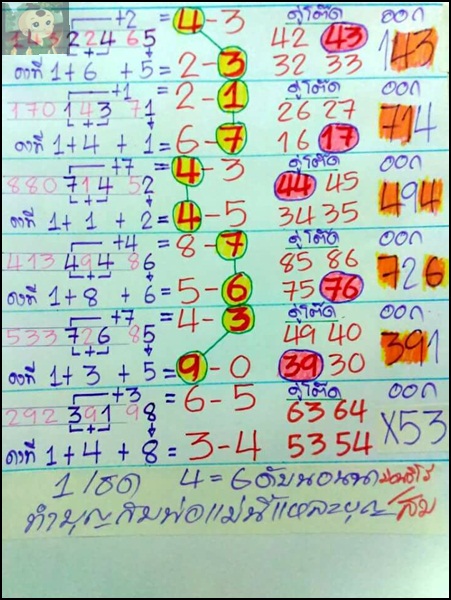 +2 4-3 คู่โต๊ด ออก
143224 65 42 43 143
คงที่ 1+6 +5= 2-3 32 33
+1 2-1 คู่โต๊ด ออก
170 143 71 26 27 714
คงที่ 1+4 +1= 6-7 16 17
+7 4-3 คู่โต๊ด ออก
880 714 52 44 45 494
คงที่ 1+1 +2= 4-5 34 35
+4 8-7 คู่โต๊ด ออก
413 494 86 85 86 726
คงที่ 1+8 +6= 5-6 75 76
+7 4-3 คู่โต๊ด ออก
533 726 85 49 40 391
คงที่ 1+3 +5= 9-0 39 30
+3 6-5 คู่โต๊ด ออก
292 391 98 63 64 X53
คงที่ 1+4 +8= 3-4 53 54
1/ธค 4=6
ทำบุญ พ่อแม่